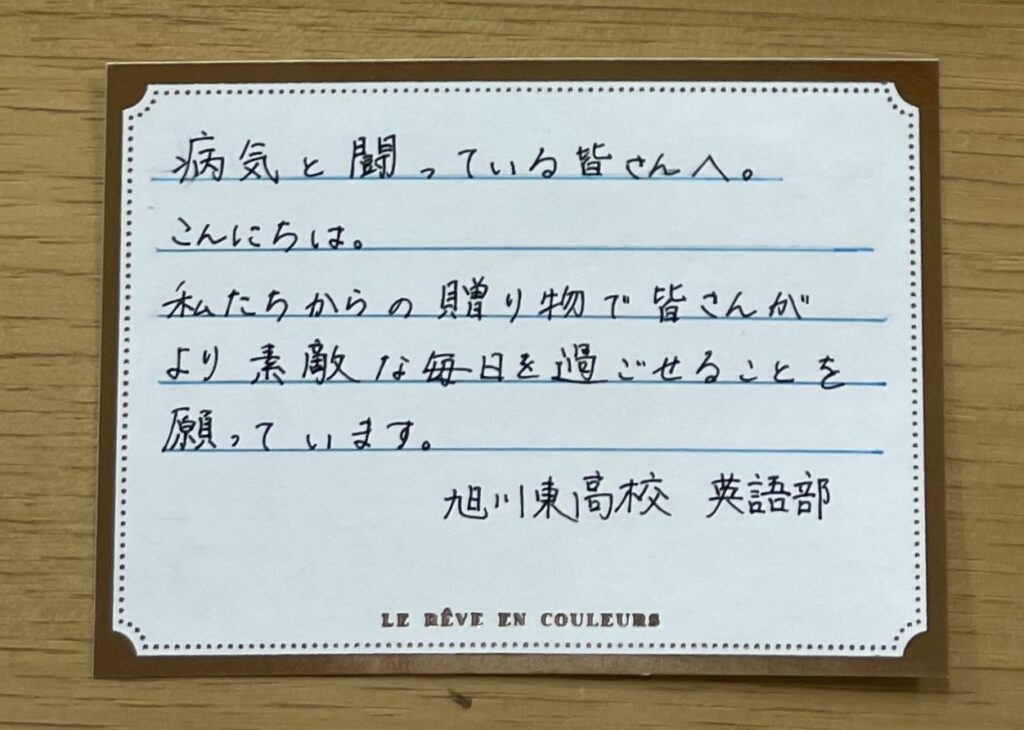 病気と闘っている皆さんへ。
こんにちは。
私たちからの贈り物で皆さんが
より素敵な毎日を過ごせることを
願っています。
旭川東高校 英語部
LE RÊVE EN COULEURS